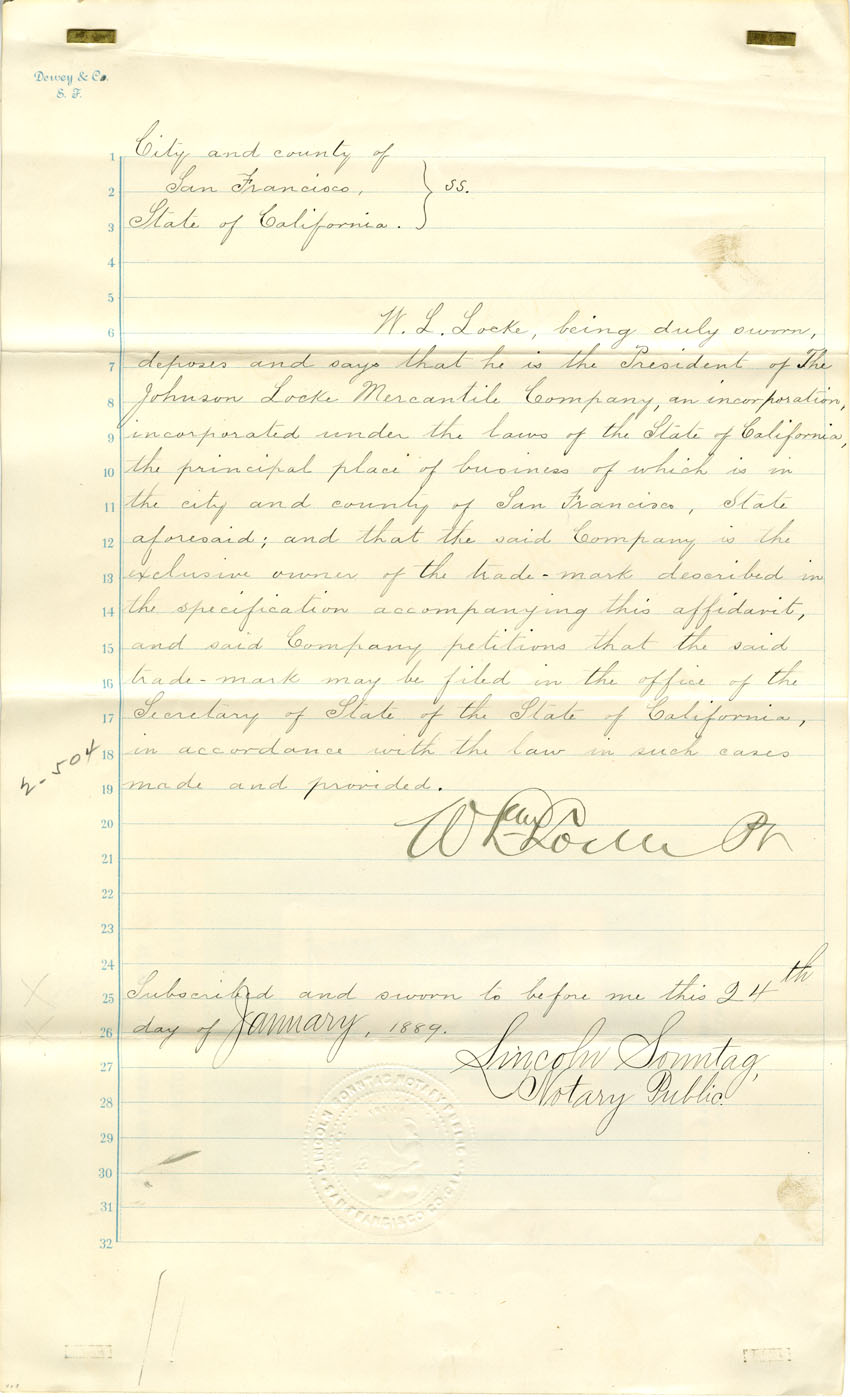 Dewey & Co.
S. F.
1 City and county of
2 San Francisco, } ss.
3 State of California.
4
5
6 W. L. Locke, being duly sworn,
7 deposes and says that he is the President of The
8 Johnson Locke Mercantile Company, an incorporation,
9 incorporated under the laws of the State of California,
10 the principal place of business of which is in
11 the city and county of San Francisco, State
12 aforesaid; and that the said Company is the
13 exclusive owner of the trade-mark described in
14 the specification accompanying this affidavit,
15 and said Company petitions that the said
16 trade-mark may be filed in the office of the
17 Secretary of State of the State of California,
18 in accordance with the law in such cases
19 made and provided.
2-504
20 W L Locke
21
22
23
24
25 Subscribed and sworn to before me this 24th
26 day of January, 1889.
27 Lincoln Sonntag,
28 Notary Public.
29
30
31
32
LINCOLN SONNTAG NOTARY PUBLIC
SAN FRANCISCO CO. CAL.